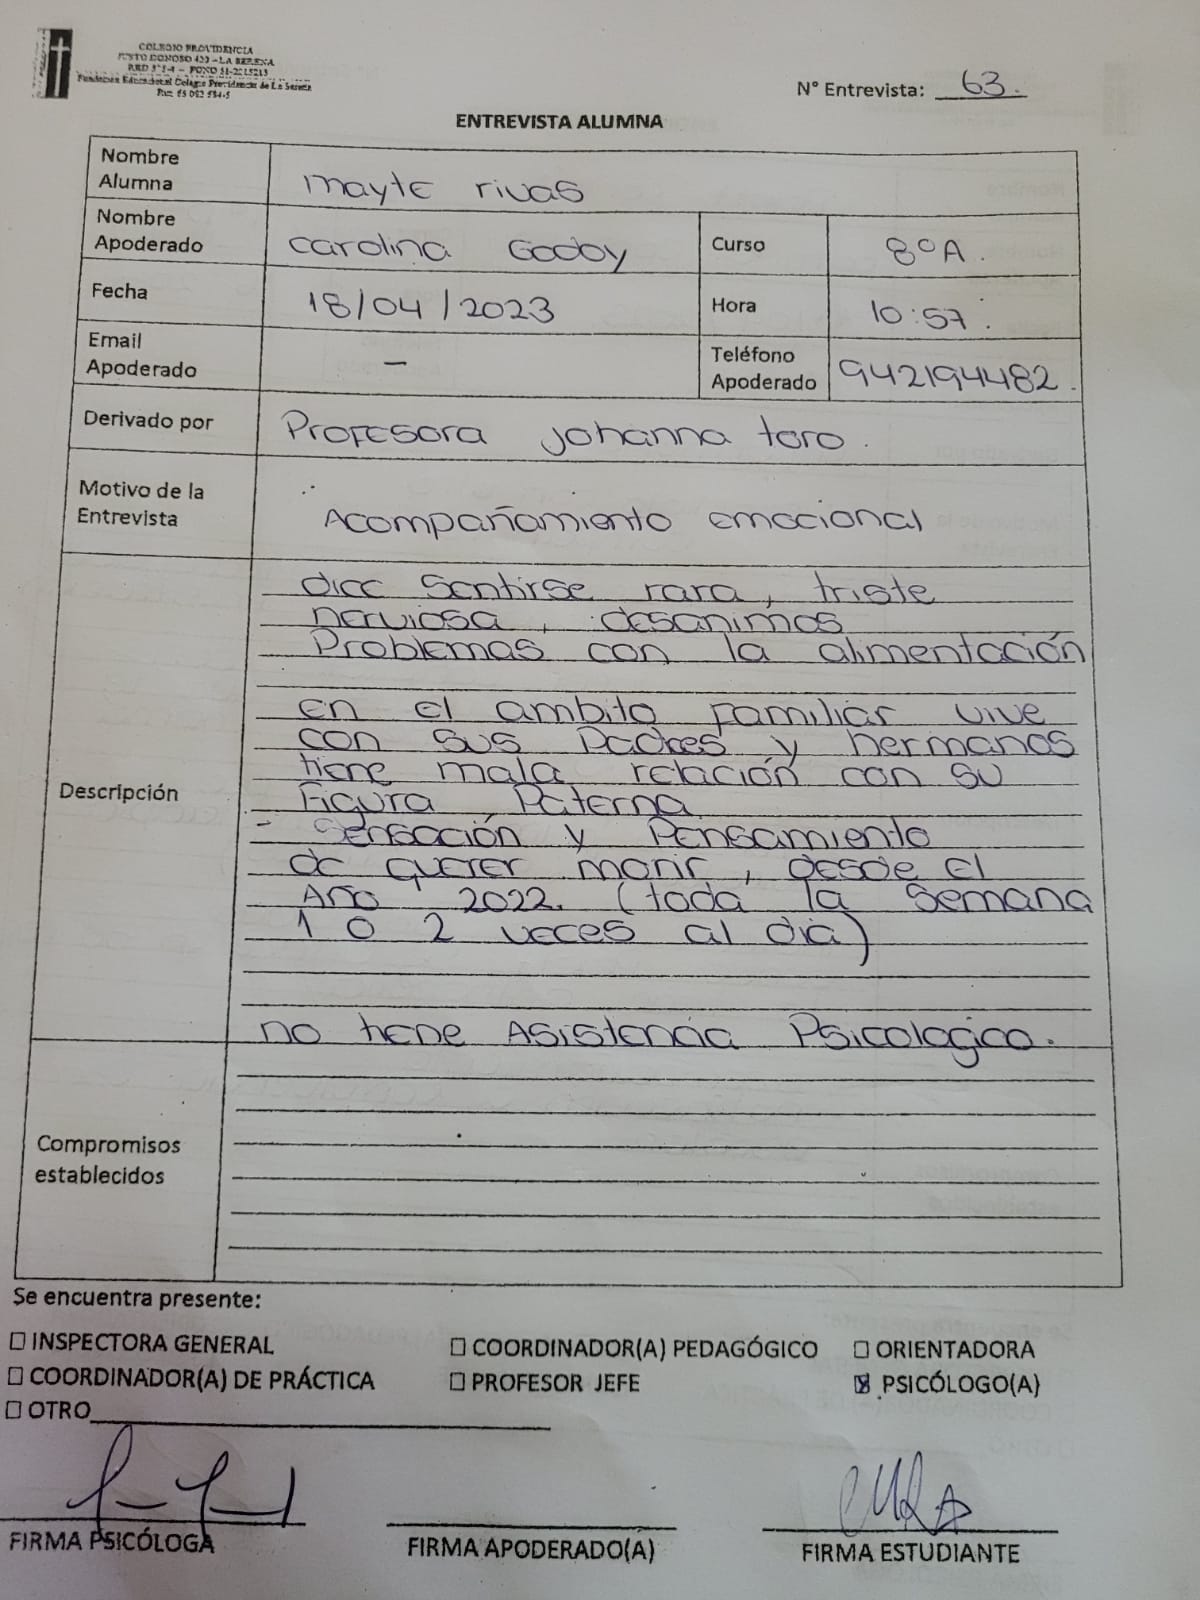 COLEGIO PROVIDENCIA
JUSTO DONOSO 420 - LA SERENA
Fundacion Educacional Colegio Providencia de La Serena
N° Entrevista: 63.
ENTREVISTA ALUMNA
Nombre Alumna mayte rivas
Nombre Apoderado carolina Godoy Curso 8°A.
Fecha 18/04/2023 Hora 10:57.
Email Apoderado - Teléfono Apoderado 942194482.
Derivado por Profesora Johanna toro.
Motivo de la Entrevista Acompañamiento emocional
Descripción
dice sentirse rara, triste
nerviosa, desanimos
Problemas con la alimentación
en el ambito Familiar vive
con sus Padres y hermanos
tiene mala relación con su
Figura Paterna
- Sensación y Pensamiento
de querer morir, desde el
Año 2022. (toda la semana
1 o 2 veces al dia)
no tiene Asistencia Psicologica.
Compromisos establecidos
Se encuentra presente:
☐ INSPECTORA GENERAL ☐ COORDINADOR(A) PEDAGÓGICO ☐ ORIENTADORA
☐ COORDINADOR(A) DE PRÁCTICA ☐ PROFESOR JEFE ☒ PSICÓLOGO(A)
☐ OTRO
FIRMA PSICÓLOGA FIRMA APODERADO(A) FIRMA ESTUDIANTE